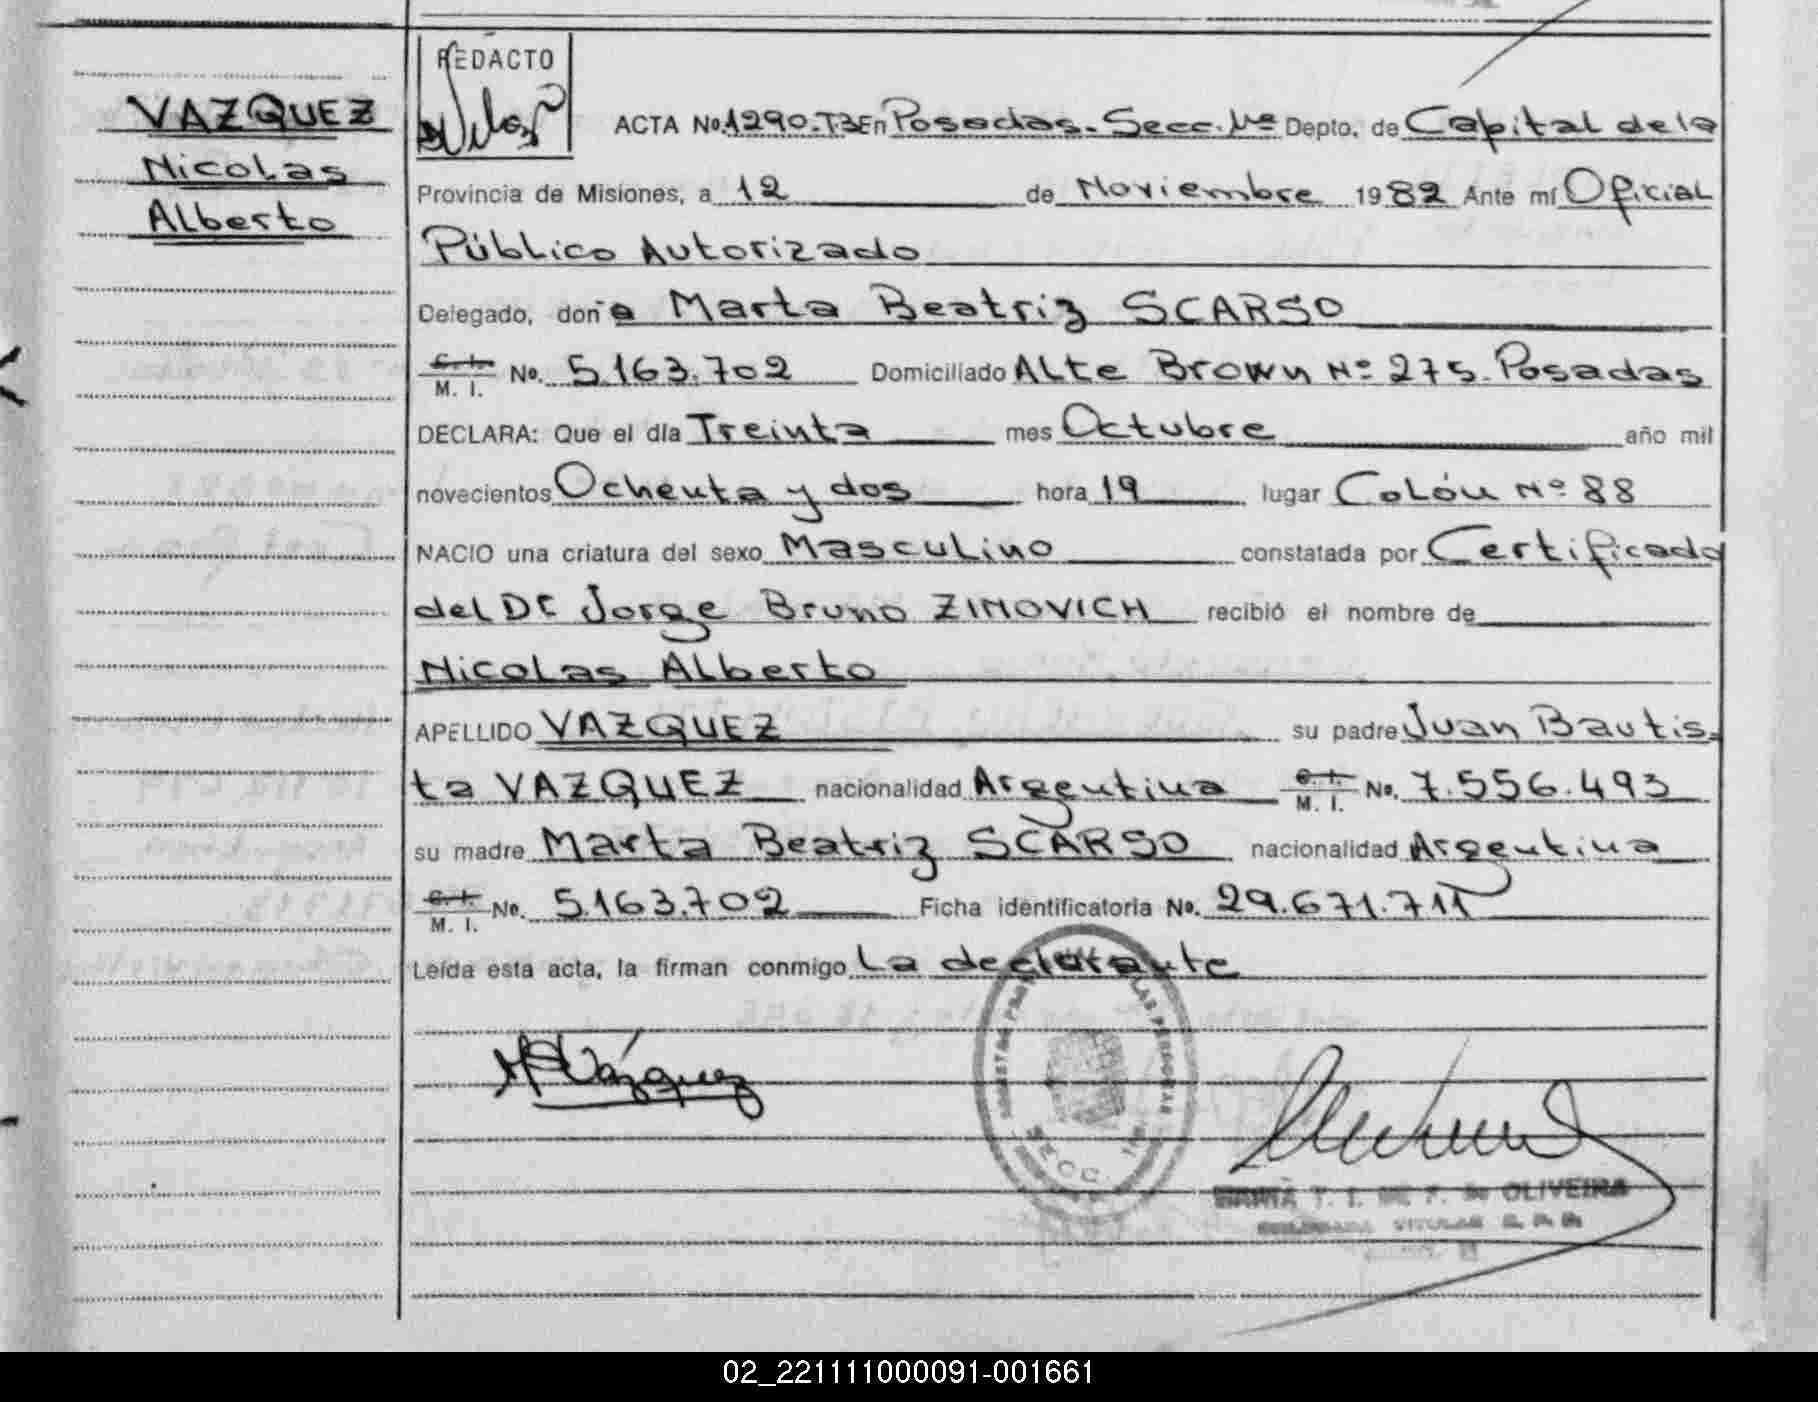 VAZQUEZ
Nicolas
Alberto
REDACTO
ACTA No. 1290.T3 En Posadas. Secc. 1ª Depto. de Capital de la
Provincia de Misiones, a 12 de Noviembre 1982 Ante mí Oficial
Público Autorizado
Delegado, doña Marta Beatriz SCARSO
C. I. M. I. No. 5.163.702 Domiciliado Alte Brown Nº 275. Posadas
DECLARA: Que el día Treinta mes Octubre año mil
novecientos Ochenta y dos hora 19 lugar Colón Nº 88
NACIO una criatura del sexo Masculino constatada por Certificado
del Dr Jorge Bruno ZIMOVICH recibió el nombre de
Nicolas Alberto
APELLIDO VAZQUEZ su padre Juan Bautis-
ta VAZQUEZ nacionalidad Argentina C. I. M. I. No. 7.556.493
su madre Marta Beatriz SCARSO nacionalidad Argentina
C. I. M. I. No. 5.163.702 Ficha identificatoria No. 29.671.711
Leída esta acta, la firman conmigo La declarante
Vázquez
SECC. 1ra
MARIA T. I. DE F. de OLIVEIRA
TITULAR
02_221111000091-001661